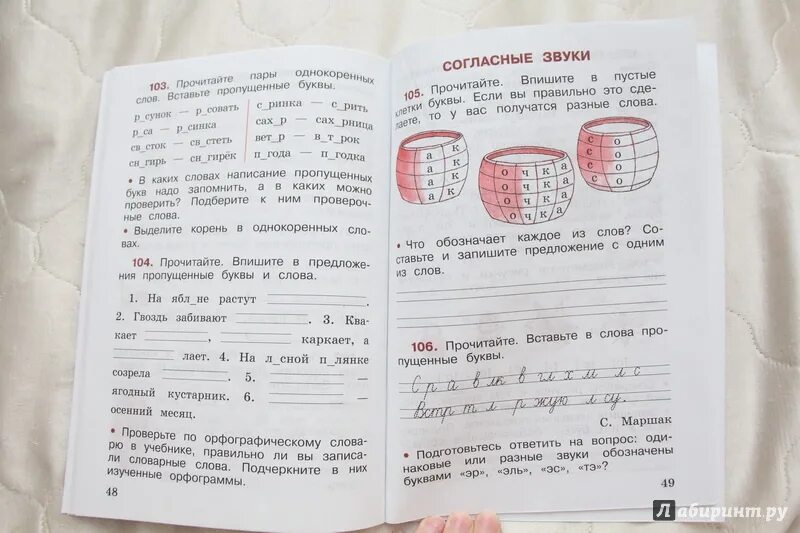 103. Прочитайте пары однокоренных
слов. Вставьте пропущенные буквы.
р_сунок — р_совать
р_са — р_синка
св_сток — св_стеть
сн_гирь — сн_гирёк
с_ринка — с_рить
сах_р — сах_рница
вет_р — в_т_рок
п_года — п_годка
• В каких словах написание пропущенных
букв надо запомнить, а в каких можно
проверить? Подберите к ним провероч-
ные слова.
• Выделите корень в однокоренных сло-
вах.
104. Прочитайте. Впишите в предложе-
ния пропущенные буквы и слова.
1. На ябл_не растут .
2. Гвоздь забивают . 3. Ква-
кает , каркает, а
лает. 4. На л_сной п_лянке
созрела . 5. —
ягодный кустарник. 6. —
осенний месяц.
• Проверьте по орфографическому слова-
рю в учебнике, правильно ли вы записа-
ли словарные слова. Подчеркните в них
изученные орфограммы.
48
СОГЛАСНЫЕ ЗВУКИ
105. Прочитайте. Впишите в пустые
клетки буквы. Если вы правильно это сде-
лаете, то у вас получатся разные слова.
а к
а к
а к
а к
о ч к а
о ч к а
о ч к а
о ч к а
с о
с о
с о
с о
• Что обозначает каждое из слов? Со-
ставьте и запишите предложение с одним
из слов.
106. Прочитайте. Вставьте в слова про-
пущенные буквы.
С р а в лк в гл х м л с
Встр т л р жую л су.
С. Маршак
• Подготовьтесь ответить на вопрос: оди-
наковые или разные звуки обозначены
буквами «эр», «эль», «эс», «тэ»?
49
Лабиринт.ру